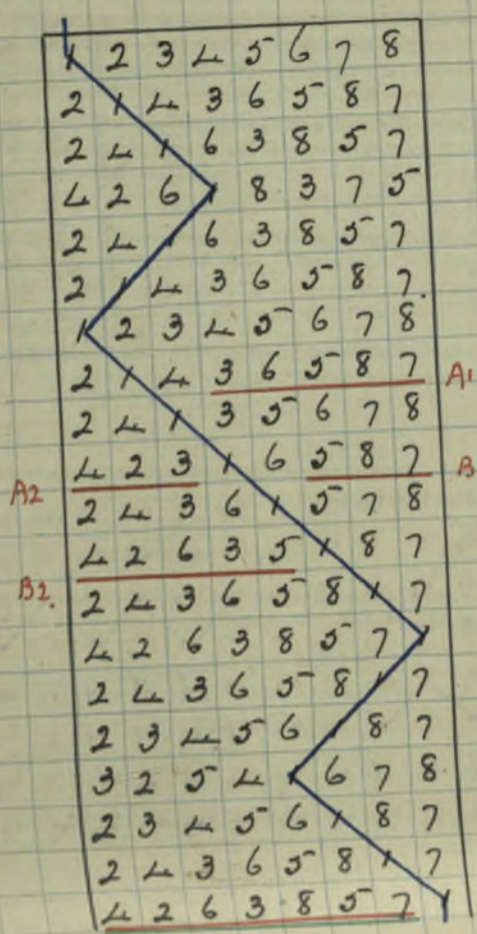 1 2 3 4 5 6 7 8
2 1 4 3 6 5 8 7
2 4 1 6 3 8 5 7
4 2 6 1 8 3 7 5
2 4 1 6 3 8 5 7
2 1 4 3 6 5 8 7.
1 2 3 4 5 6 7 8
2 1 4 3 6 5 8 7 A1
2 4 1 3 5 6 7 8
A2 4 2 3 1 6 5 8 7 B
2 4 3 6 1 5 7 8
4 2 6 3 5 1 8 7
B2. 2 4 3 6 5 8 1 7
4 2 6 3 8 5 7 1
2 4 3 6 5 8 1 7
2 3 4 5 6 1 8 7
3 2 5 4 1 6 7 8
2 3 4 5 6 1 8 7
2 4 3 6 5 8 1 7
4 2 6 3 8 5 7 1